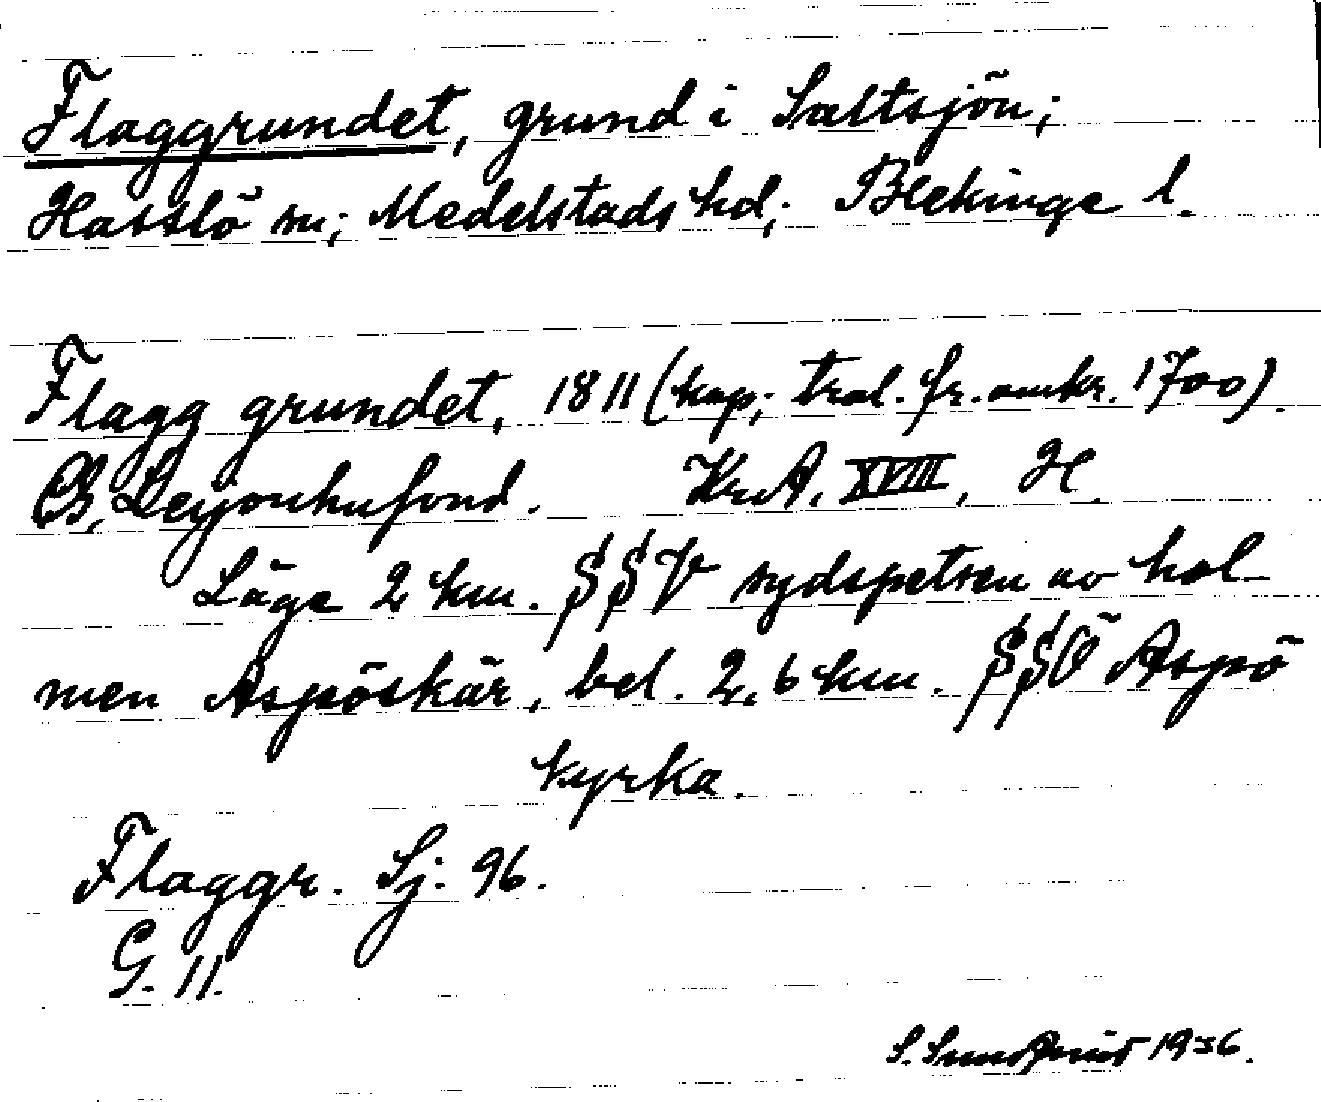 Flaggrundet, grund i Saltsjön;
Hasslö sn; Medelstads hd; Blekinge l.
Flagg grundet, 1811 (kop; tral. fr. omkr. 1700).
CB. Leyonhufond. Kr.A. XVIII, H.
Läge 2 km. SSV sydspetsen av hol-
men Aspöskär, bel. 2,6 km. SSÖ Aspö
kyrka.
Flaggr. Sj. 96.
G. 11.
S. Sundquist 1936.